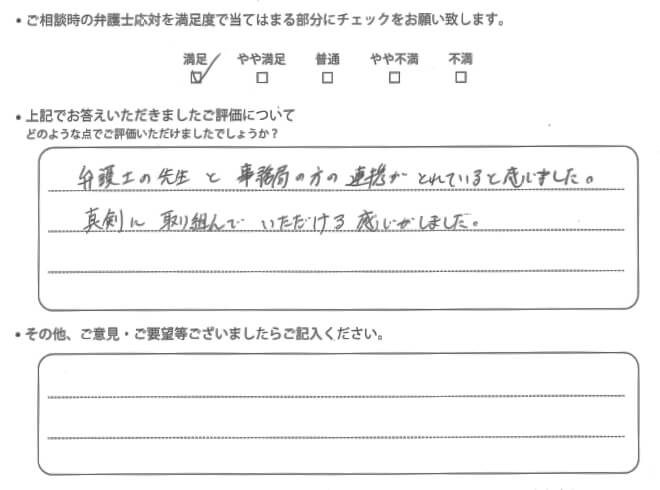 ・ご相談時の弁護士応対を満足度で当てはまる部分にチェックをお願い致します。
満足 やや満足 普通 やや不満 不満
・上記でお答えいただきましたご評価について
どのような点でご評価いただけましたでしょうか？
弁護士の先生と事務局の方の連携がとれていると感じました。
真剣に取り組んでいただける感じがしました。
・その他、ご意見・ご要望等ございましたらご記入ください。